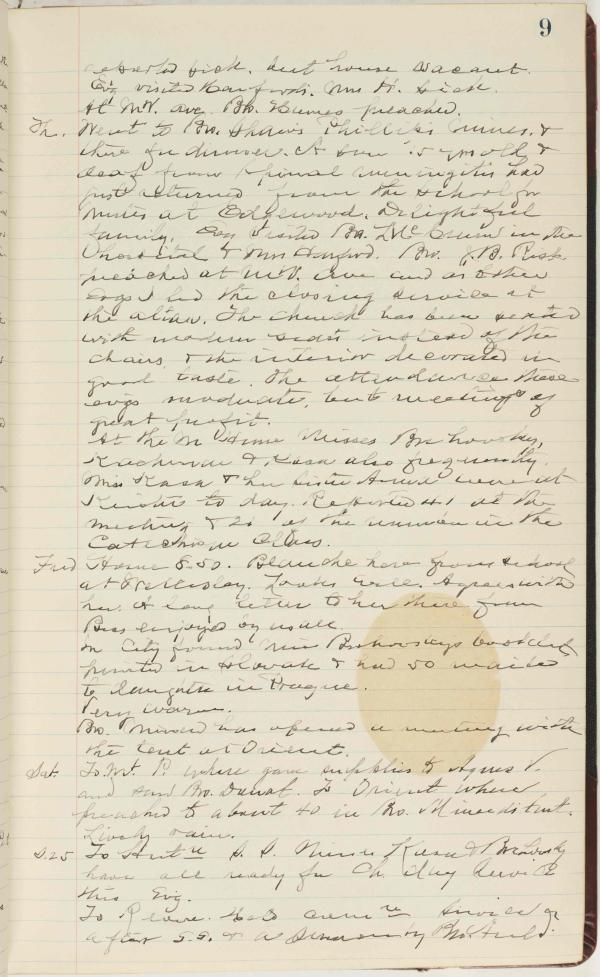 9
reported sick. but house vacant.
Evg visited Hanfords. Mrs H. sick.
At Mt V. Ave. Bro. preached.
Th. Went to Bro. Shaws Phillips mines, &
there for dinner. A son 15 yrs old &
deaf from spinal meningitis had
just returned from the school for
mutes at Edgewood. Delightful
family. Evg visited Bro. in the
Hospital & Mrs Hanford. Bro. J. B. Risk
preached at Mt V. Ave and as other
evgs I led the closing service at
the altar. The church has been seated
with modern seats instead of the
chairs & the interior decorated in
good taste. The attendance these
evgs moderate, but meetings of
great profit.
At the M Home Misses Brohovsky,
& Kasa also frequently.
Miss Kasa & her sister Anna were at
to day. Reported 41 at the
meeting & 20 of the in the
Catechism Class.
Frid Home 8.50. Blanche here from school
at Wellesley. Looks well. Agrees with
her. A long letter to her there from
Bess enjoyed by us all.
In City found Miss Brohovskys booklet
printed in Slovak & had 50 mailed
to in Prague.
Very warm.
Bro. has opened a meeting with
the tent at Orient.
Sat. To Mt. P. where gave supplies to Agnes V.
and saw Bro. To Orient where
preached to about 40 in Bro. tent.
Lively rain.
S. 25 To S. S. Misses Kasa & Brohovsky
have all ready for Ch. Day Service
this Evg.
To service
after S.S. & a Sermon by Bro.